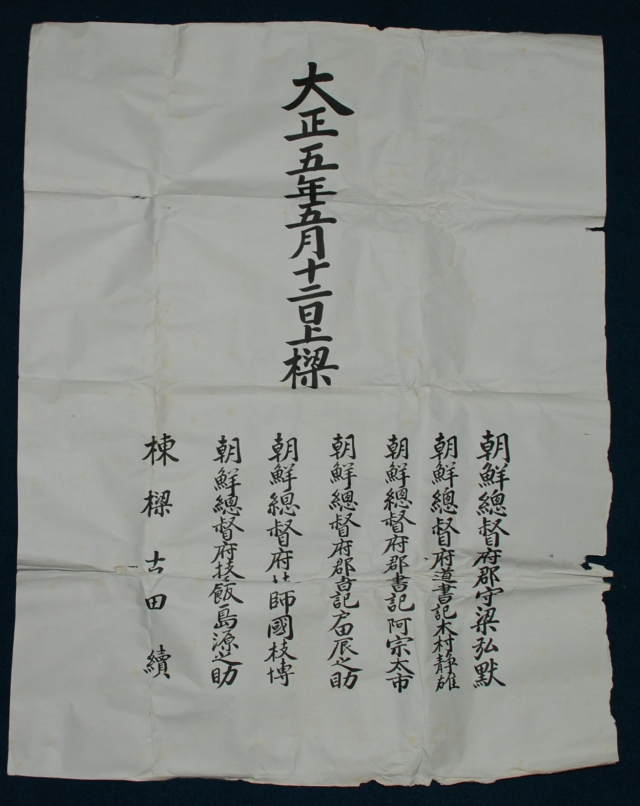 大正五年五月十二日上樑
朝鮮總督府郡守梁弘默
朝鮮總督府道書記木村靜雄
朝鮮總督府郡書記阿宗太市
朝鮮總督府郡書記戸田辰之助
朝鮮總督府技師國枝博
朝鮮總督府技飯島源之助
棟樑 古田 續